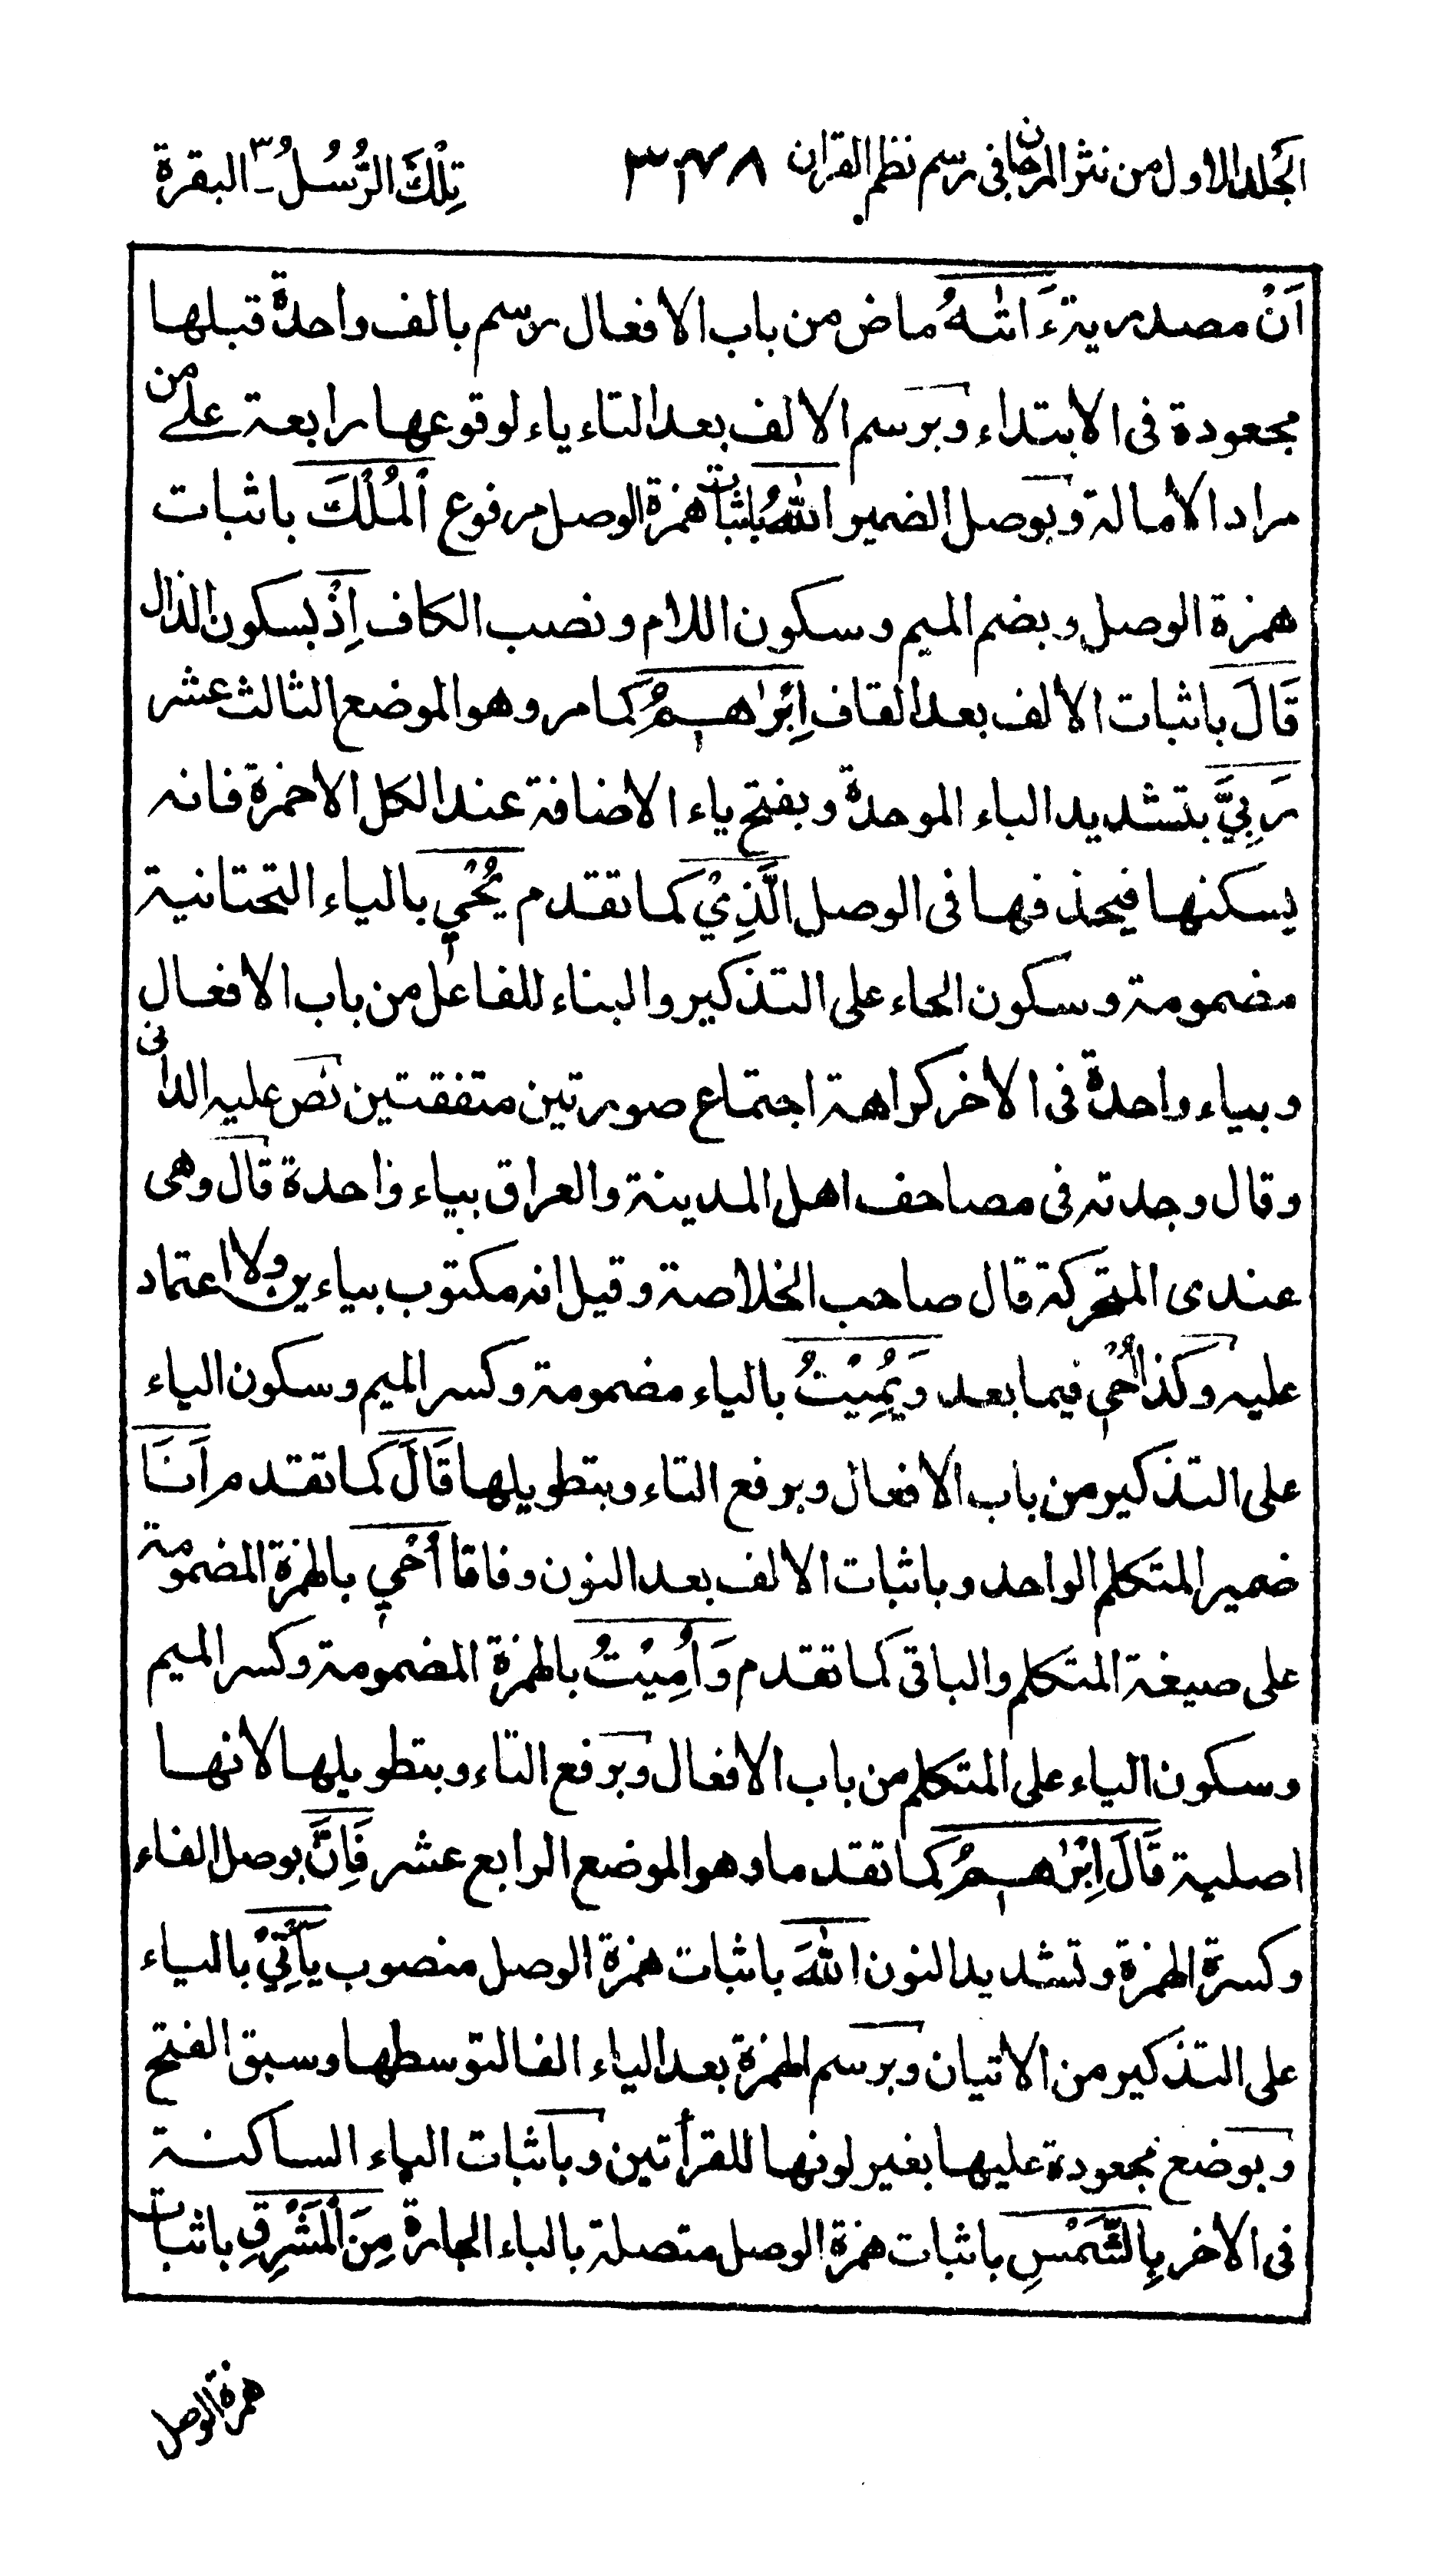 الجلد الاول من نثر المرجان فى رسم نظم القران ٣٤٨ تِلْكَ الرُّسُلُ ٣ - البقرة
اَنْ مصدرية ءَاتٰىهُ ماض من باب الافعال رسم بالف واحدة قبلها
مجعودة فى الابتداء وبرسم الالف بعد التاء ياء لوقوعها رابعة على من
مراد الامالة وبوصل الضمير اللّٰهُ باثبات همزة الوصل مرفوع ٱلْمُلْكَ باثبات
همزة الوصل وبضم الميم وسكون اللام ونصب الكاف اِذْ بسكون الذال
قَالَ باثبات الالف بعد القاف اِبْرٰهٖمُ كما مر وهو الموضع الثالث عشر
رَبِّيَ بتشديد الباء الموحدة وبفتح ياء الاضافة عند الكل الا حمزة فانه
يسكنها فيحذفها فى الوصل الَّذِيْ كما تقدم يُحْيٖ بالياء التحتانية
مضمومة وسكون الحاء على التذكير والبناء للفاعل من باب الافعال
وبياء واحدة فى الاخر كراهة اجتماع صورتين متفقتين نص عليه الدانى
وقال وجدته فى مصاحف اهل المدينة والعراق بياء واحدة قال وهى
عندى المتحركة قال صاحب الخلاصة وقيل انه مكتوب بياءين ولا اعتماد
عليه وكذا اُحْيٖ فيما بعد وَيُمِيْتُ بالياء مضمومة وكسر الميم وسكون الياء
على التذكير من باب الافعال وبرفع التاء وبتطويلها قَالَ كما تقدم اَنَا
ضمير المتكلم الواحد وباثبات الالف بعد النون وفاقا اُحْيٖ بالهمزة المضمومة
على صيغة المتكلم والباقى كما تقدم وَاُمِيْتُ بالهمزة المضمومة وكسر الميم
وسكون الياء على المتكلم من باب الافعال وبرفع التاء وبتطويلها لانها
اصلية قَالَ اِبْرٰهٖمُ كما تقدما وهو الموضع الرابع عشر فَاِنَّ بوصل الفاء
وكسرة الهمزة وتشديد النون اللّٰهَ باثبات همزة الوصل منصوب يَأْتِيْ بالياء
على التذكير من الاتيان وبرسم الهمزة بعد الياء الفا لتوسطها وسبق الفتح
وبوضع مجعودة عليها بغير لونها للقرأتين وباثبات الياء الساكنة
فى الاخر بِالشَّمْسِ باثبات همزة الوصل متصلة بالباء الجارة مِنَ ٱلْمَشْرِقِ باثبات
همزة الوصل